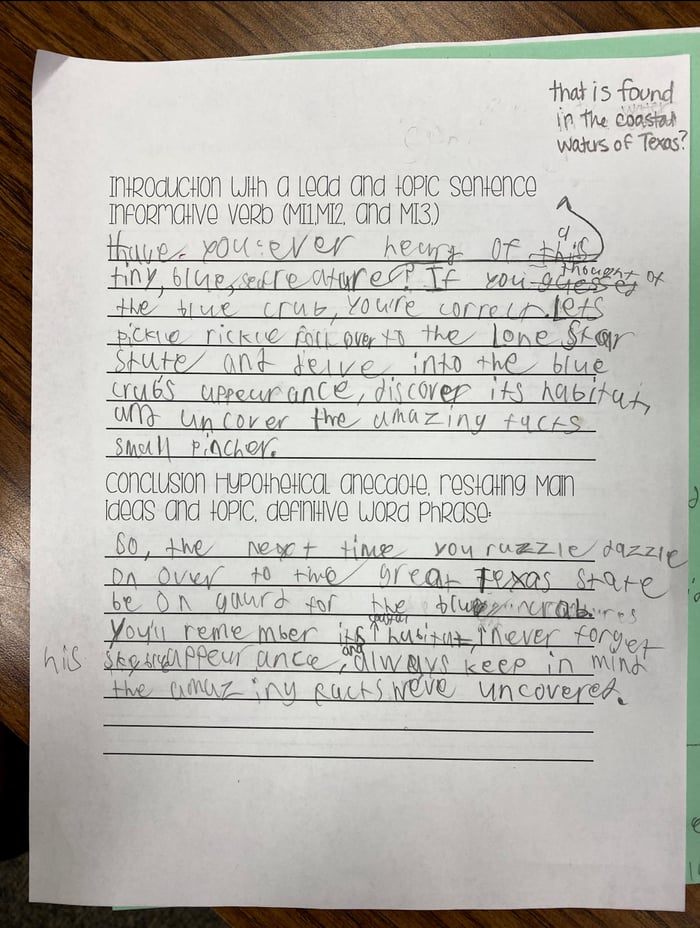 that is found
in the coastal
waters of Texas?
Introduction with a lead and topic sentence
informative verb (MI1,MI2, and MI3,)
Have you ever heary of a this
tiny, blue, sea creature? If you guessed thought of
the blue crab, you're correct. Lets
pickle rickle roll over to the Lone Star
State and delve into the blue
crab's appearance, discover its habitat,
and uncover the amazing facts
small pincher.
Conclusion Hypothetical anecdote, restating main
ideas and topic, definitive word phrase:
So, the next time you razzle dazzle
on over to the great Texas State
be on gaurd for the blue crab.
You'll remember its habitat, never forget
his appearance, and always keep in mind
the amazing facts we've uncovered.